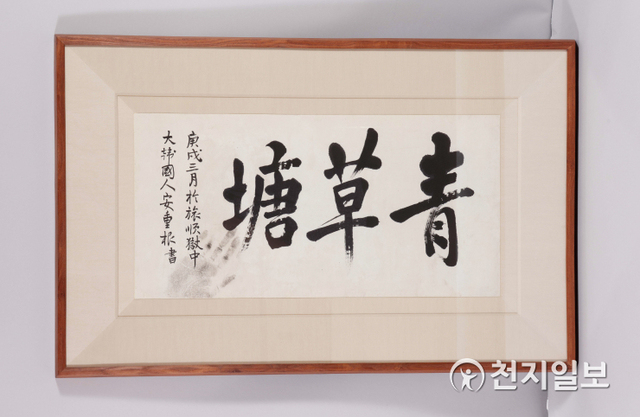 青草塘
庚戌三月於旅順獄中
大韓國人安重根書
천지일보